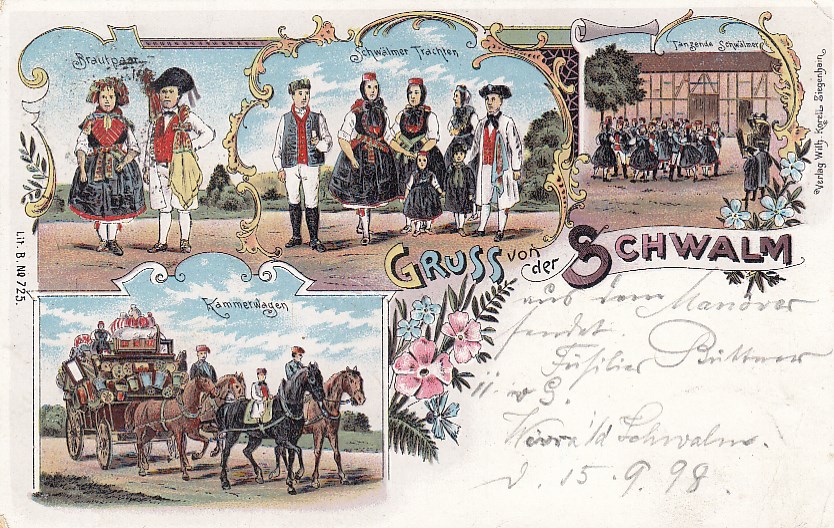 Brautpaar
Schwälmer Trachten
Tanzende Schwälmer
Verlag Wilh.
Lit. B. No 725.
GRUSS von der SCHWALM
Kammerwagen
aus dem Manöver
sendet
Füsilier Büttner
Schwalm.
d. 15.9.98.